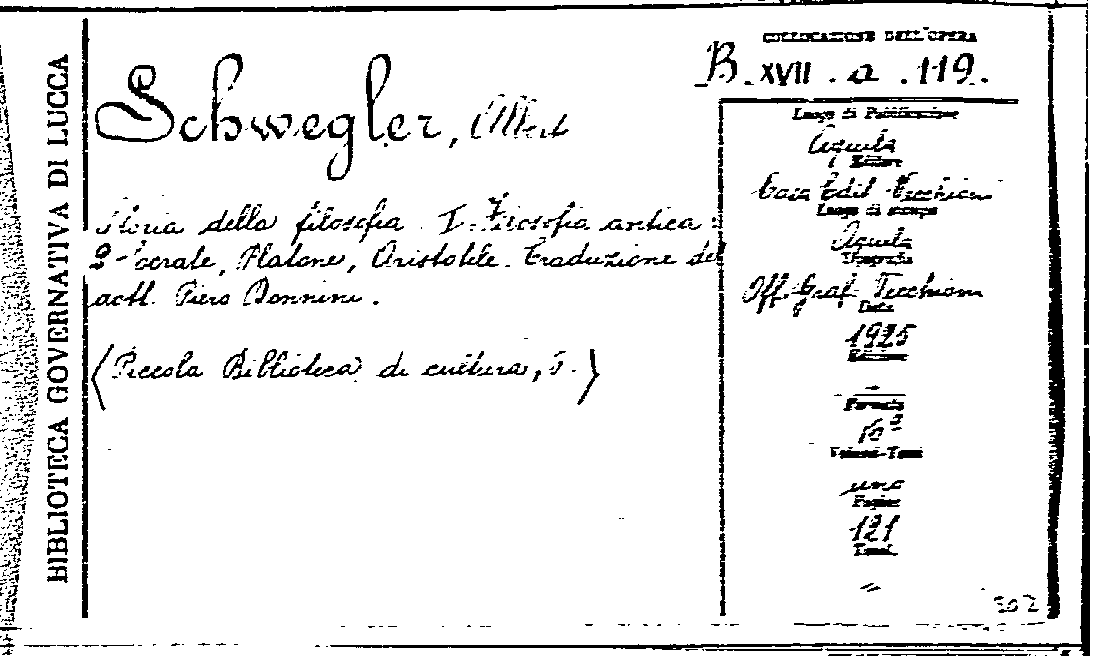 BIBLIOTECA GOVERNATIVA DI LUCCA
COLLOCAZIONE DELL'OPERA
B. XVII . a . 119.
Schwegler, Albert
Storia della filosofia. I. Filosofia antica:
2- Socrate, Platone, Aristotele. Traduzione del
dott. Piero Bonnini.
(Piccola Biblioteca di cultura, 5.)
Luogo di Pubblicazione
Aquila
Editore
Casa Edit Vecchioni
Luogo di stampa
Aquila
Tipografia
Off. Graf. Vecchioni
Data
1925
Edizione
—
Formato
16º
Volumi-Tomi
uno
Pagine
121
Tavol.
502